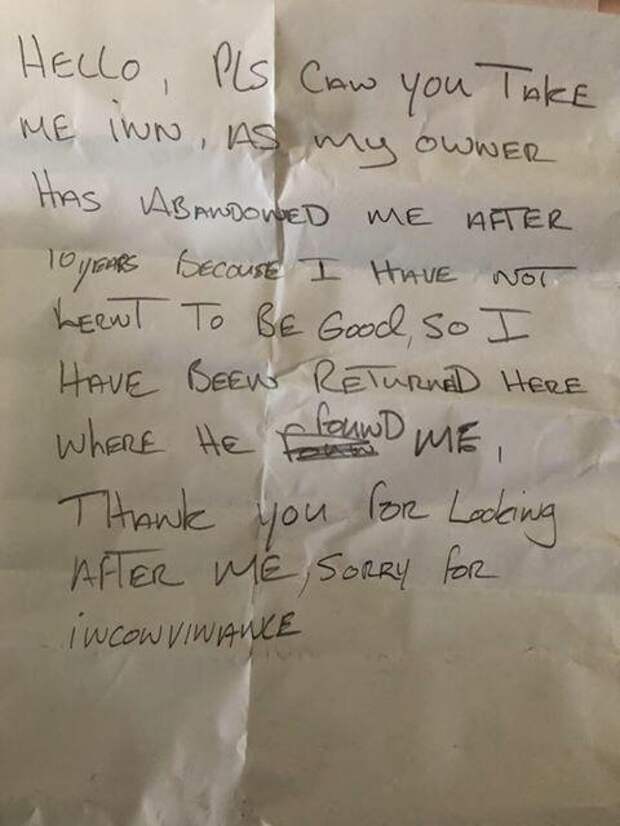 HELLO, PLS CAN YOU TAKE
ME INN, AS MY OWNER
HAS ABANDONED ME AFTER
10 YEARS BECOUSE I HAVE NOT
LERNT TO BE GOOd, SO I
HAVE BEEN RETURNED HERE
WHERE HE FOUND ME,
THANK YOU FOR LOOKING
AFTER ME, SORRY FOR
INCONVINANCE